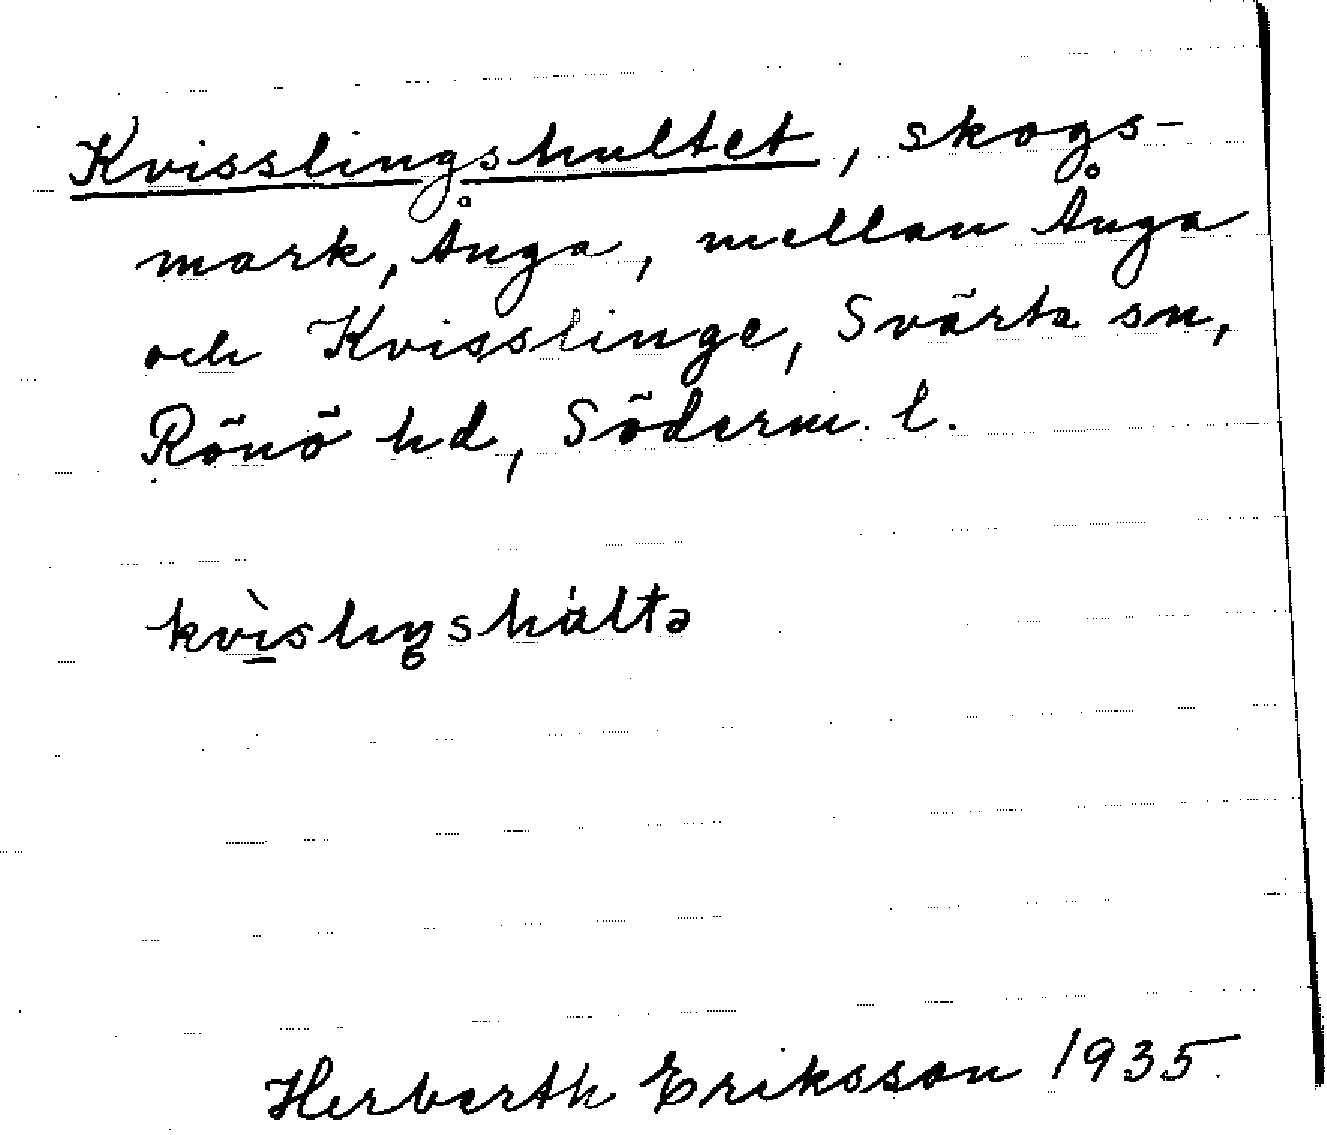 Kvisslingshultet, skogs-
mark, Ånga, mellan Ånga
och Kvisslinge, Svärta sn,
Rönö hd, Söderm. l.
kvìslıŋsháltə
Herberth Eriksson 1935